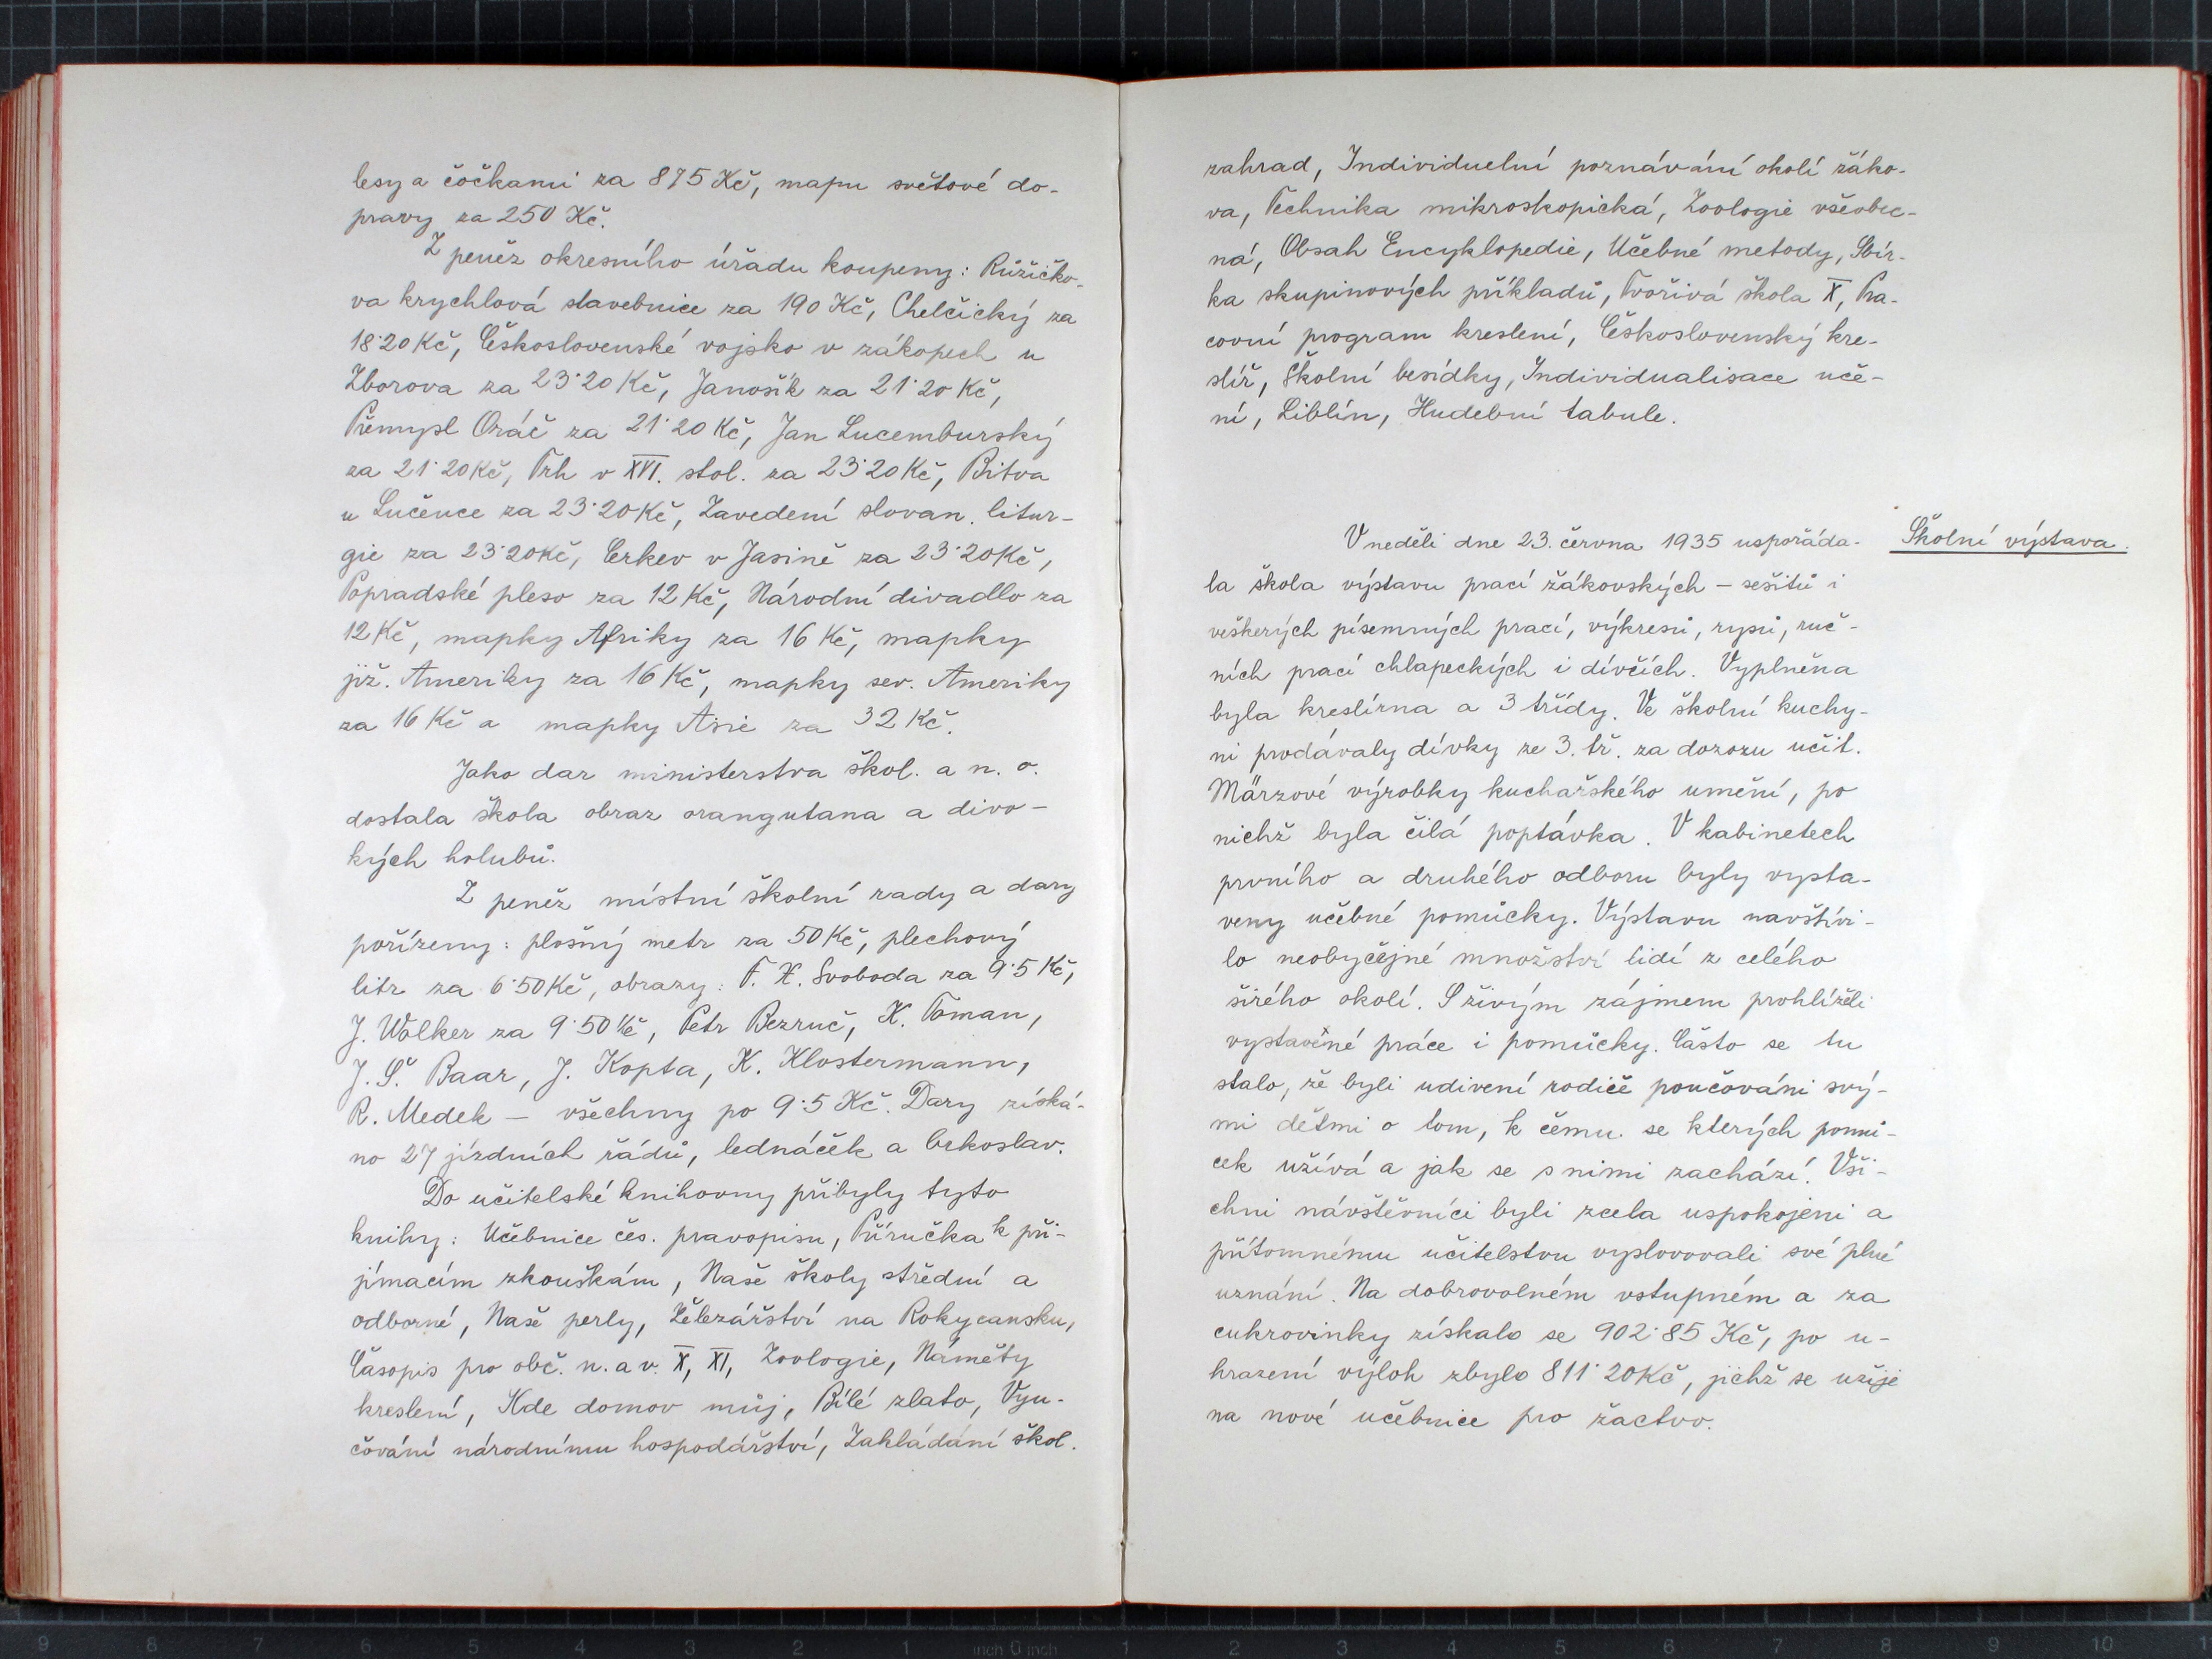 lesy a čočkami za 875 Kč, mapu světové do-
pravy za 250 Kč.
Z peněz okresního úřadu koupeny: Růžičko-
va krychlová stavebnice za 190 Kč, Chelčický za
18·20 Kč, Československé vojsko v zákopech u
Zborova za 23·20 Kč, Janošík za 21·20 Kč,
Přemysl Oráč za 21·20 Kč, Jan Lucemburský
za 21·20 Kč, Trh v XVI. stol. za 23·20 Kč, Bitva
u Lučence za 23·20 Kč, Zavedení slovan. litur-
gie za 23·20 Kč, Cerkev v Jasině za 23·20 Kč,
Popradské pleso za 12 Kč, Národní divadlo za
12 Kč, mapky Afriky za 16 Kč, mapky
již. Ameriky za 16 Kč, mapky sev. Ameriky
za 16 Kč a mapky Asie za 32 Kč.
Jako dar ministerstva škol. a n. o.
dostala škola obraz orangutana a divo-
kých holubů.
Z peněz místní školní rady a dary
pořízeny: plošný metr za 50 Kč, plechový
litr za 6·50 Kč, obrazy: F. X. Svoboda za 9·5 Kč,
J. Wolker za 9·50 Kč, Petr Bezruč, K. Toman,
J. Š. Baar, J. Kopta, K. Klostermann,
R. Medek — všechny po 9·5 Kč. Dary získá-
no 27 jízdních řádů, ledňáček a brkoslav.
Do učitelské knihovny přibyly tyto
knihy: Učebnice čes. pravopisu, Příručka k při-
jímacím zkouškám, Naše školy střední a
odborné, Naše perly, Železářství na Rokycansku,
Časopis pro obč. n. a v. X, XI, Zoologie, Náměty
kreslení, Kde domov můj, Bílé zlato, Vyu-
čování národnímu hospodářství, Zakládání škol.
zahrad, Individuelní poznávání okolí žáko-
va, Technika mikroskopická, Zoologie všeobec-
ná, Obsah Encyklopedie, Učebné metody, Sbír-
ka skupinových příkladů, Tvořivá škola X, Pra-
covní program kreslení, Československý kre-
slíř, Školní besídky, Individualisace uče-
ní, Liblín, Hudební tabule.
Školní výstava.
V neděli dne 23. června 1935 uspořáda-
la škola výstavu prací žákovských — sešitů i
veškerých písemných prací, výkresů, rysů, ruč-
ních prací chlapeckých i dívčích. Vyplněna
byla kreslírna a 3 třídy. Ve školní kuchy-
ni prodávaly dívky ze 3. tř. za dozoru učit.
Märzové výrobky kuchařského umění, po
nichž byla čilá poptávka. V kabinetech
prvního a druhého odboru byly vysta-
veny učebné pomůcky. Výstavu navštívi-
lo neobyčejné množství lidí z celého
širého okolí. S živým zájmem prohlíželi
vystavěné práce i pomůcky. Často se tu
stalo, že byli udivení rodiče poučováni svý-
mi dětmi o tom, k čemu se kterých pomů-
cek užívá a jak se s nimi zachází. Vši-
chni návštěvníci byli zcela uspokojeni a
přítomnému učitelstvu vyslovovali své plné
uznání. Na dobrovolném vstupném a za
cukrovinky získalo se 902·85 Kč, po u-
hrazení výloh zbylo 811·20 Kč, jichž se užije
na nové učebnice pro žactvo.
9 8 7 6 5 4 3 2 1 inch 0 inch 1 2 3 4 5 6 7 8 9 10